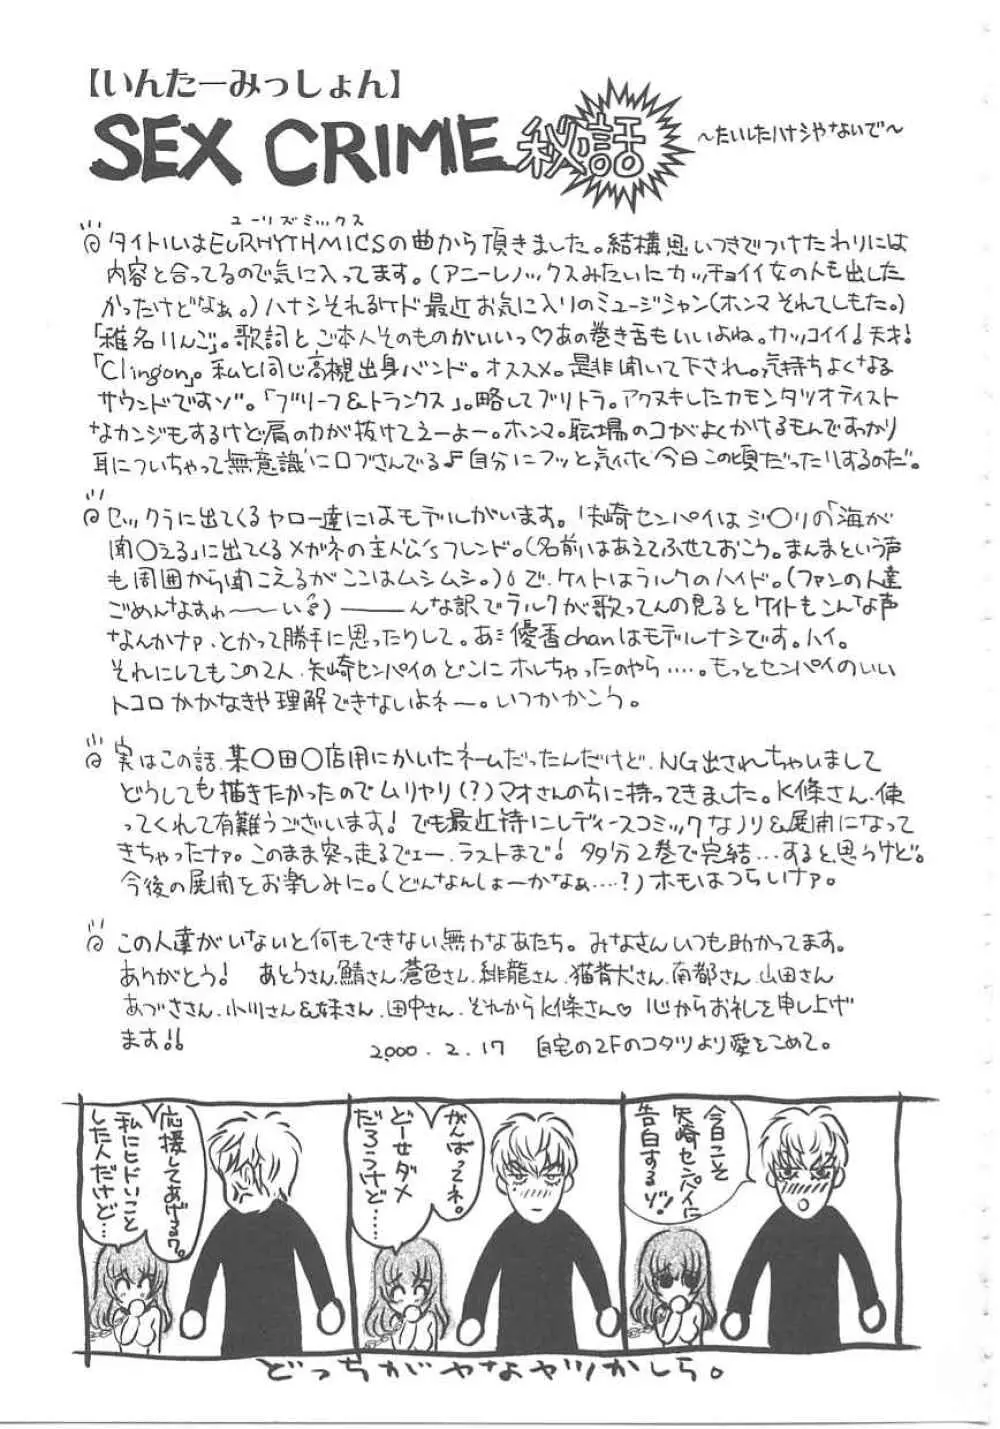 【いんたーみっしょん】
SEX CRIME 秘話 〜たいしたハナシやないで〜
ユーリズミックス
タイトルはEuRHYTHMICSの曲から頂きました。結構思いつきでつけたわりには
内容と合ってるので気に入ってます。(アニーレノックスみたいにカッチョイイ女の人も出した
かったけどなぁ。)ハナシそれるケド最近お気に入りのミュージシャン(ホンマそれてしもた。)
「椎名りんご」。歌詞とご本人そのものがいいっ♡あの巻き舌もいいよね。カッコイイ!天才!
「Clingon」。私と同じ高槻出身バンド。オススメ。是非聞いて下され。気持ちよくなる
サウンドですゾ。「ブリーフ&トランクス」。略してブリトラ。アクヌキしたカモンタツオテイスト
なカンジもするけど肩の力が抜けてえーよー。ホンマ。職場のコがよくかけるモンですっかり
耳についちゃって無意識に口ずさんでる♪自分にフッと気付く今日この頃だったりするのだ。
セックラに出てくるヤロー達にはモデルがいます。矢崎センパイはジ〇リの「海が
聞〇える」に出てくるメガネの主人公'sフレンド。(名前はあえてふせておこう。まんまという声
も周囲から聞こえるがここはムシムシ。)で、ケイトはラルクのハイド。(ファンの人達
ごめんなすわ〜〜い)――んな訳でラルクが歌ってんの見るとケイトもこんな声
なんかナァ、とかって勝手に思ったりして。あ、優香chanはモデルナシです。ハイ。
それにしてもこの2人、矢崎センパイのどこにホレちゃったのやら……。もっとセンパイのいい
トコロかかなきゃ理解できないよネー。いつかかこう。
実はこの話、某〇田〇店用にかいたネームだったんだけど、NG出されちゃいまして
どうしても描きたかったのでムリヤリ(?)マオさんのちに持ってきました。K條さん、使
ってくれて有難うございます!でも最近特にレディースコミックなノリ&展開になって
きちゃったナァ。このまま突っ走るでェー、ラストまで!多分2巻で完結…すると思うけど。
今後の展開をお楽しみに。(どんなんしょーかなぁ…?)ホモはつらいけァ。
この人達がいないと何もできない無力なあたち。みなさんいつも助かってます。
ありがとう! あとうさん、鯖さん、蒼色さん、緋龍さん、猫背犬さん、南都さん、山田さん
あづささん、小川さん&妹さん、田中さん、それからK條さん♡ 心からお礼を申し上げ
ます!!
2000.2.17 自宅の2Fのコタツより愛をこめて。
今日こそ
矢崎センパイに
告白するゾ!
がんばってネ。
どーせダメ
だろうけど……
応援してあげるワ。
私にヒドいこと
した人だけど…
どっちがヤなヤツかしら。